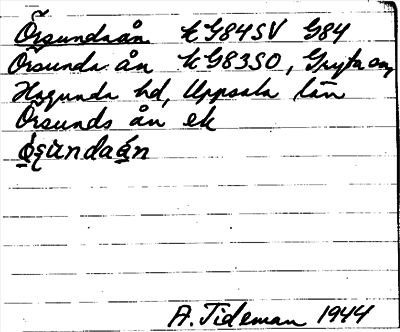 Örsundaån kG84SV G84
Örsunda ån kG83SO, Gryta sn,
Hagunda hd, Uppsala län
Örsunds ån ek
A. Tideman 1944